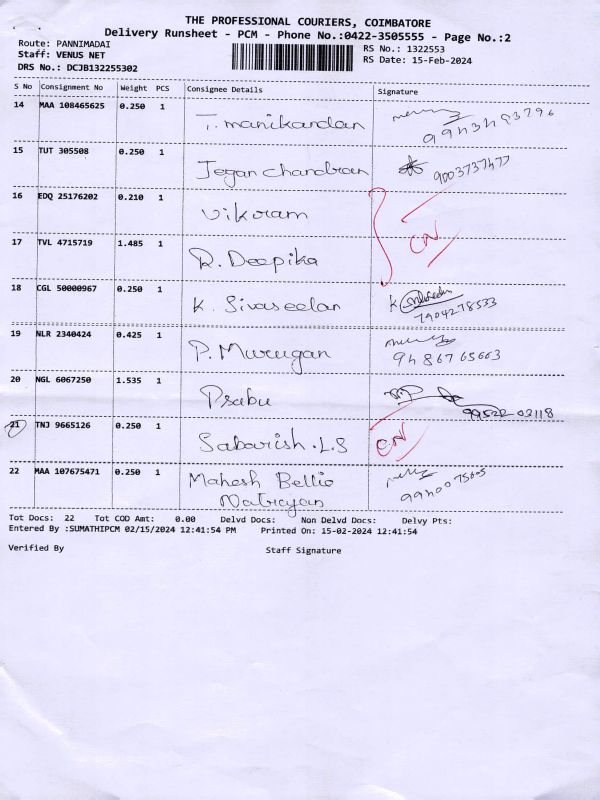 THE PROFESSIONAL COURIERS, COIMBATORE
Delivery Runsheet - PCM - Phone No.:0422-3505555 - Page No.:2
Route: PANNIMADAI
Staff: VENUS NET
DRS No.: DCJB132255302
RS No.: 1322553
RS Date: 15-Feb-2024
S No Consignment No Weight PCS Consignee Details Signature
14 MAA 108465625 0.250 1 T. manikandan
15 TUT 305508 0.250 1 Jegan chandran 9003737477
16 EDQ 25176202 0.210 1 Vikram
17 TVL 4715719 1.485 1 R. Deepika CN
18 CGL 50000967 0.250 1 K. Sivaseelan K
7904278533
19 NLR 2340424 0.425 1 P. Murugan 9486765663
20 NGL 6067250 1.535 1 Prabu 99522 03118
21 TNJ 9665126 0.250 1 Sabarish .L.S CN
22 MAA 107675471 0.250 1 Mahesh Bellie
Natrayan
Tot Docs: 22 Tot COD Amt: 0.00 Delvd Docs: Non Delvd Docs: Delvy Pts:
Entered By :SUMATHIPCM 02/15/2024 12:41:54 PM Printed On: 15-02-2024 12:41:54
Verified By Staff Signature